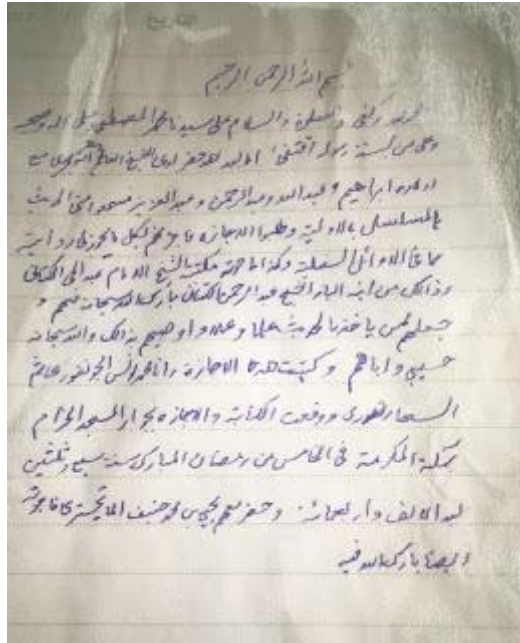 التاريخ
بسم الله الرحمن الرحيم
الحمد لله وكفى والصلاة والسلام على سيدنا محمد المصطفى وعلى آله وصحبه
وعلى من لسنة رسوله اقتفى أما بعد لقد حضر لدي الشيخ مع
أولاده ابراهيم وعبد الله وعبد الرحمن وعبد العزيز فسمعوا مني الحديث
المسلسل بالأولية وطلبوا الاجازة فأجزتهم بكل ما يجوز لي روايته
بما في الاوائل السنبلية وكذا ما حوته مكتبة الشيخ الامام عبد الحي الكتاني
وذالك من ابنه البار الشيخ عبد الرحمن الكتاني بارك الله سبحانه فيهم و
جعلهم ممن يأخذ بالحديث علما وعملا و اوصيهم بذالك والله سبحانه
حسبي واياهم وكتبت هذه الاجازة وانا محمد انس
السهارنفوري ووقعت الكتابة والاجازة بجوار المسجد الحرام
بمكة المكرمة في الخامس من رمضان المبارك سنة سبع وثلثين
بعد الالف واربعمائة. وحضر معهم يحيى بن محمد حنيف فاجزته
ايضا بارك الله فيه